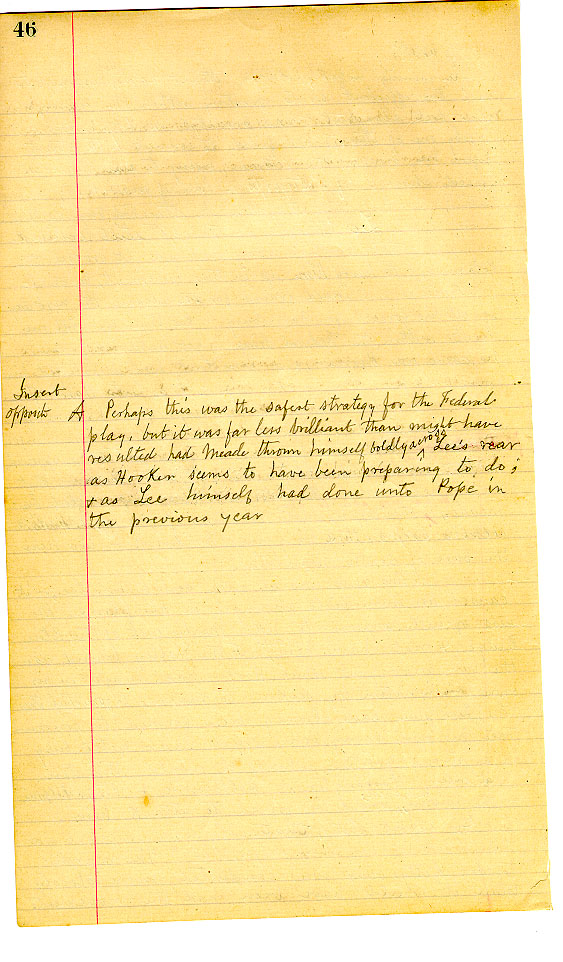 46
Insert
opposite A Perhaps this was the safest strategy for the Federal
play, but it was far less brilliant than might have
resulted had Meade thrown himself boldly across Lee's rear
as Hooker seems to have been preparing to do;
& as Lee himself had done unto Pope in
the previous year